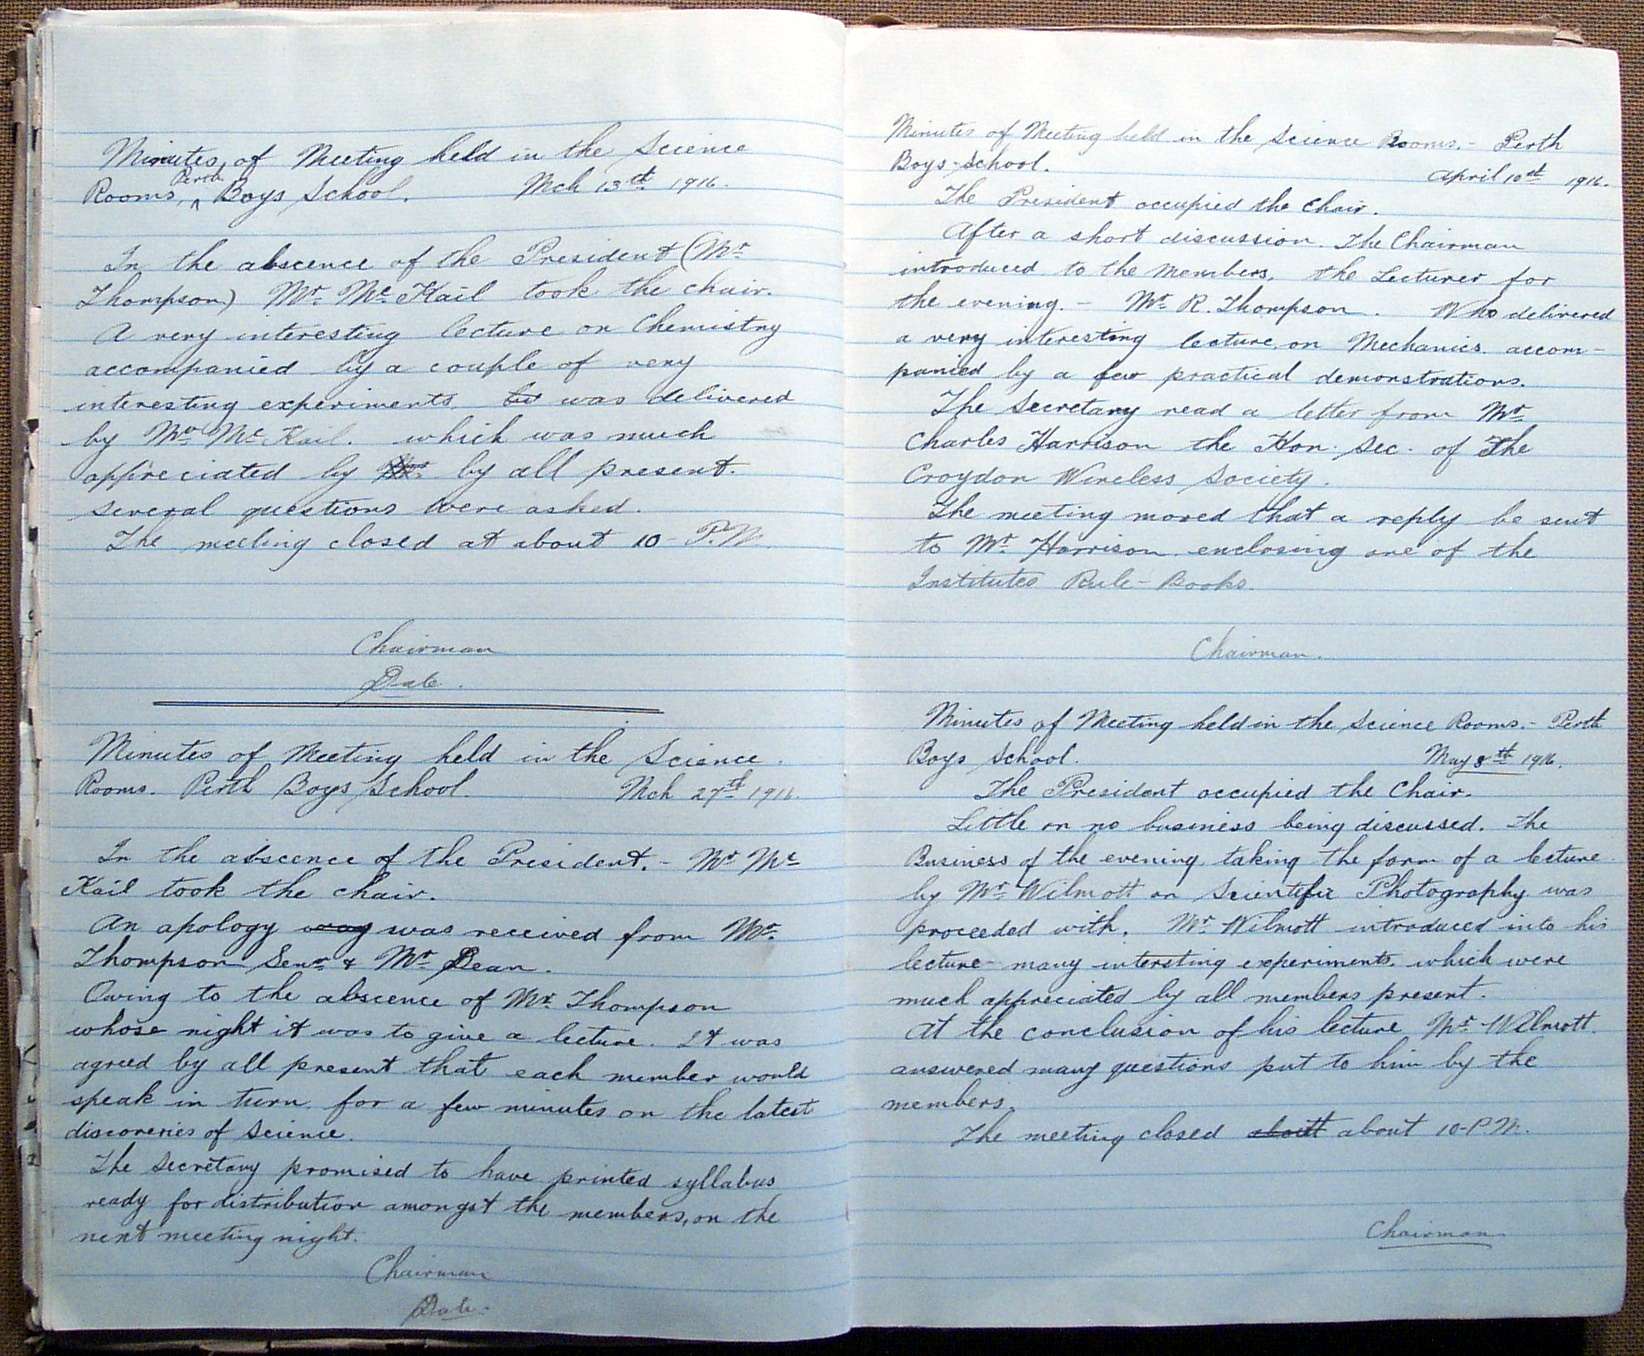 Minutes, of Meeting held in the Science
Rooms, Perth Boys School. Mch 13th 1916.
In the abscence of the President (Mr
Thompson) Mr Mc Kail took the chair.
A very interesting lecture on Chemistry
accompanied by a couple of very
interesting experiments. was delivered
by Mr Mc Kail. which was much
appreciated by by all present.
Several questions were asked.
The meeting closed at about 10 - P.M.
Chairman
Date.
Minutes of Meeting held in the Science.
Rooms. Perth Boys School. Mch 27th 1916.
In the abscence of the President. - Mr Mc
Kail took the chair.
An apology was received from Mr.
Thompson Senr & Mr Dean.
Owing to the abscence of Mr. Thompson
whose night it was to give a lecture. It was
agreed by all present that each member would
speak in turn for a few minutes on the latest
discoveries of Science.
The Secretary promised to have printed syllabus
ready for distribution amongst the members, on the
next meeting night.
Chairman
Date-
Minutes of Meeting held in the Science Rooms. - Perth
Boys-School. April 10th 1916.
The President occupied the Chair.
After a short discussion. The Chairman
introduced to the Members. the Lecturer for
the evening. - Mr R. Thompson. Who delivered
a very interesting lecture, on Mechanics. accom-
panied by a few practical demonstrations.
The Secretary read a letter from Mr
Charles Harrison the Hon. Sec. of The
Croydon Wireless Society.
The meeting moved that a reply be sent
to Mr. Harrison enclosing one of the
Institutes Rule-Books.
Chairman.
Minutes of Meeting held in the Science Rooms. - Perth
Boys School. May 8th 1916.
The President occupied the Chair.
Little or no business being discussed. The
Business of the evening taking the form of a lecture
by Mr Wilmott on Scientific Photography was
proceeded with. Mr Wilmott introduced into his
lecture- many intersting experiments. which were
much appreciated by all members present.
At the conclusion of his lecture Mr-Wilmott.
answered many questions put to him by the
members.
The meeting closed about 10-P.M.
Chairman.